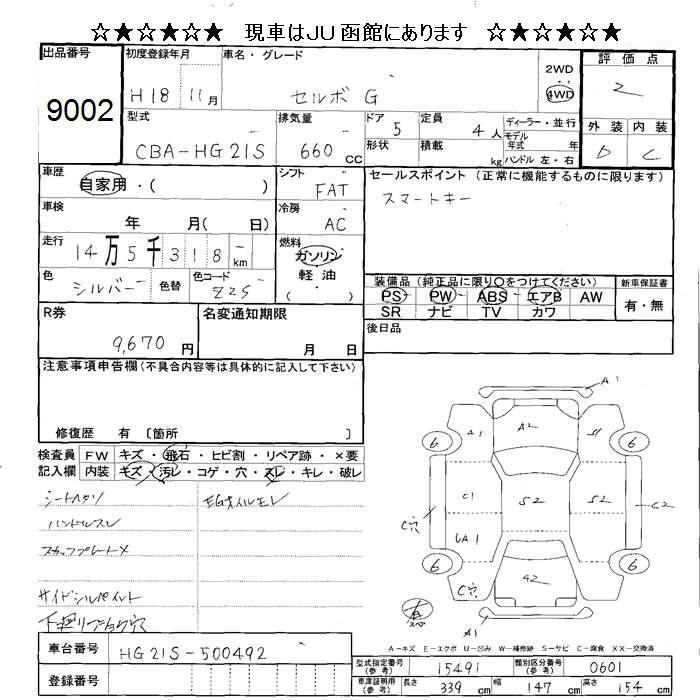 ☆★☆★☆ 現車はJU函館にあります ☆★☆★☆
出品番号
9002
初度登録年月
H18 11月
車名・グレード
セルボ G
2WD
4WD
評価点
2
型式
CBA-HG21S
排気量
660 CC
ドア
5
定員
4人
形状
積載
kg
ディーラー・並行
モデル
年式 年
ハンドル 左・右
外装 内装
D C
車歴
自家用・( )
シフト
FAT
セールスポイント (正常に機能するものに限ります)
スマートキー
車検
年 月( 日)
冷房
AC
走行
14万5千318-km
燃料
ガソリン
軽油
( )
色
シルバー
色替
色コード
Z2S
装備品 (純正品に限り〇をつけてください)
PS・PW・ABS・エアB AW
SR ナビ TV カワ
新車保証書
有・無
R券
9,670 円
名変通知期限
月 日
後日品
注意事項申告欄(不具合内容等は具体的に記入して下さい)
修復歴 有 〔箇所 〕
検査員
記入欄
FW キズ・飛石・ヒビ割・リペア跡・×要
内装 キズ・汚レ・コゲ・穴・スレ・キレ・破レ
シートヘタリ
ハンドルスレ
スカッフプレートメ
サイドシルペイント
A1
A1 A2 S1
6 6
C1 S2 S2 C2
C穴
UA1
6 6
C穴 A2
有
スペア
A1
A-キズ E-エクボ U-凹み W-補修跡 S-サビ C-腐食 XX-交換済
車台番号
HG21S-500492
登録番号
型式指定番号
(参考)
15491
類別区分番号
(参考)
0601
車庫証明用
(参考)
長さ 339 cm 幅 147 cm 高さ 154 cm